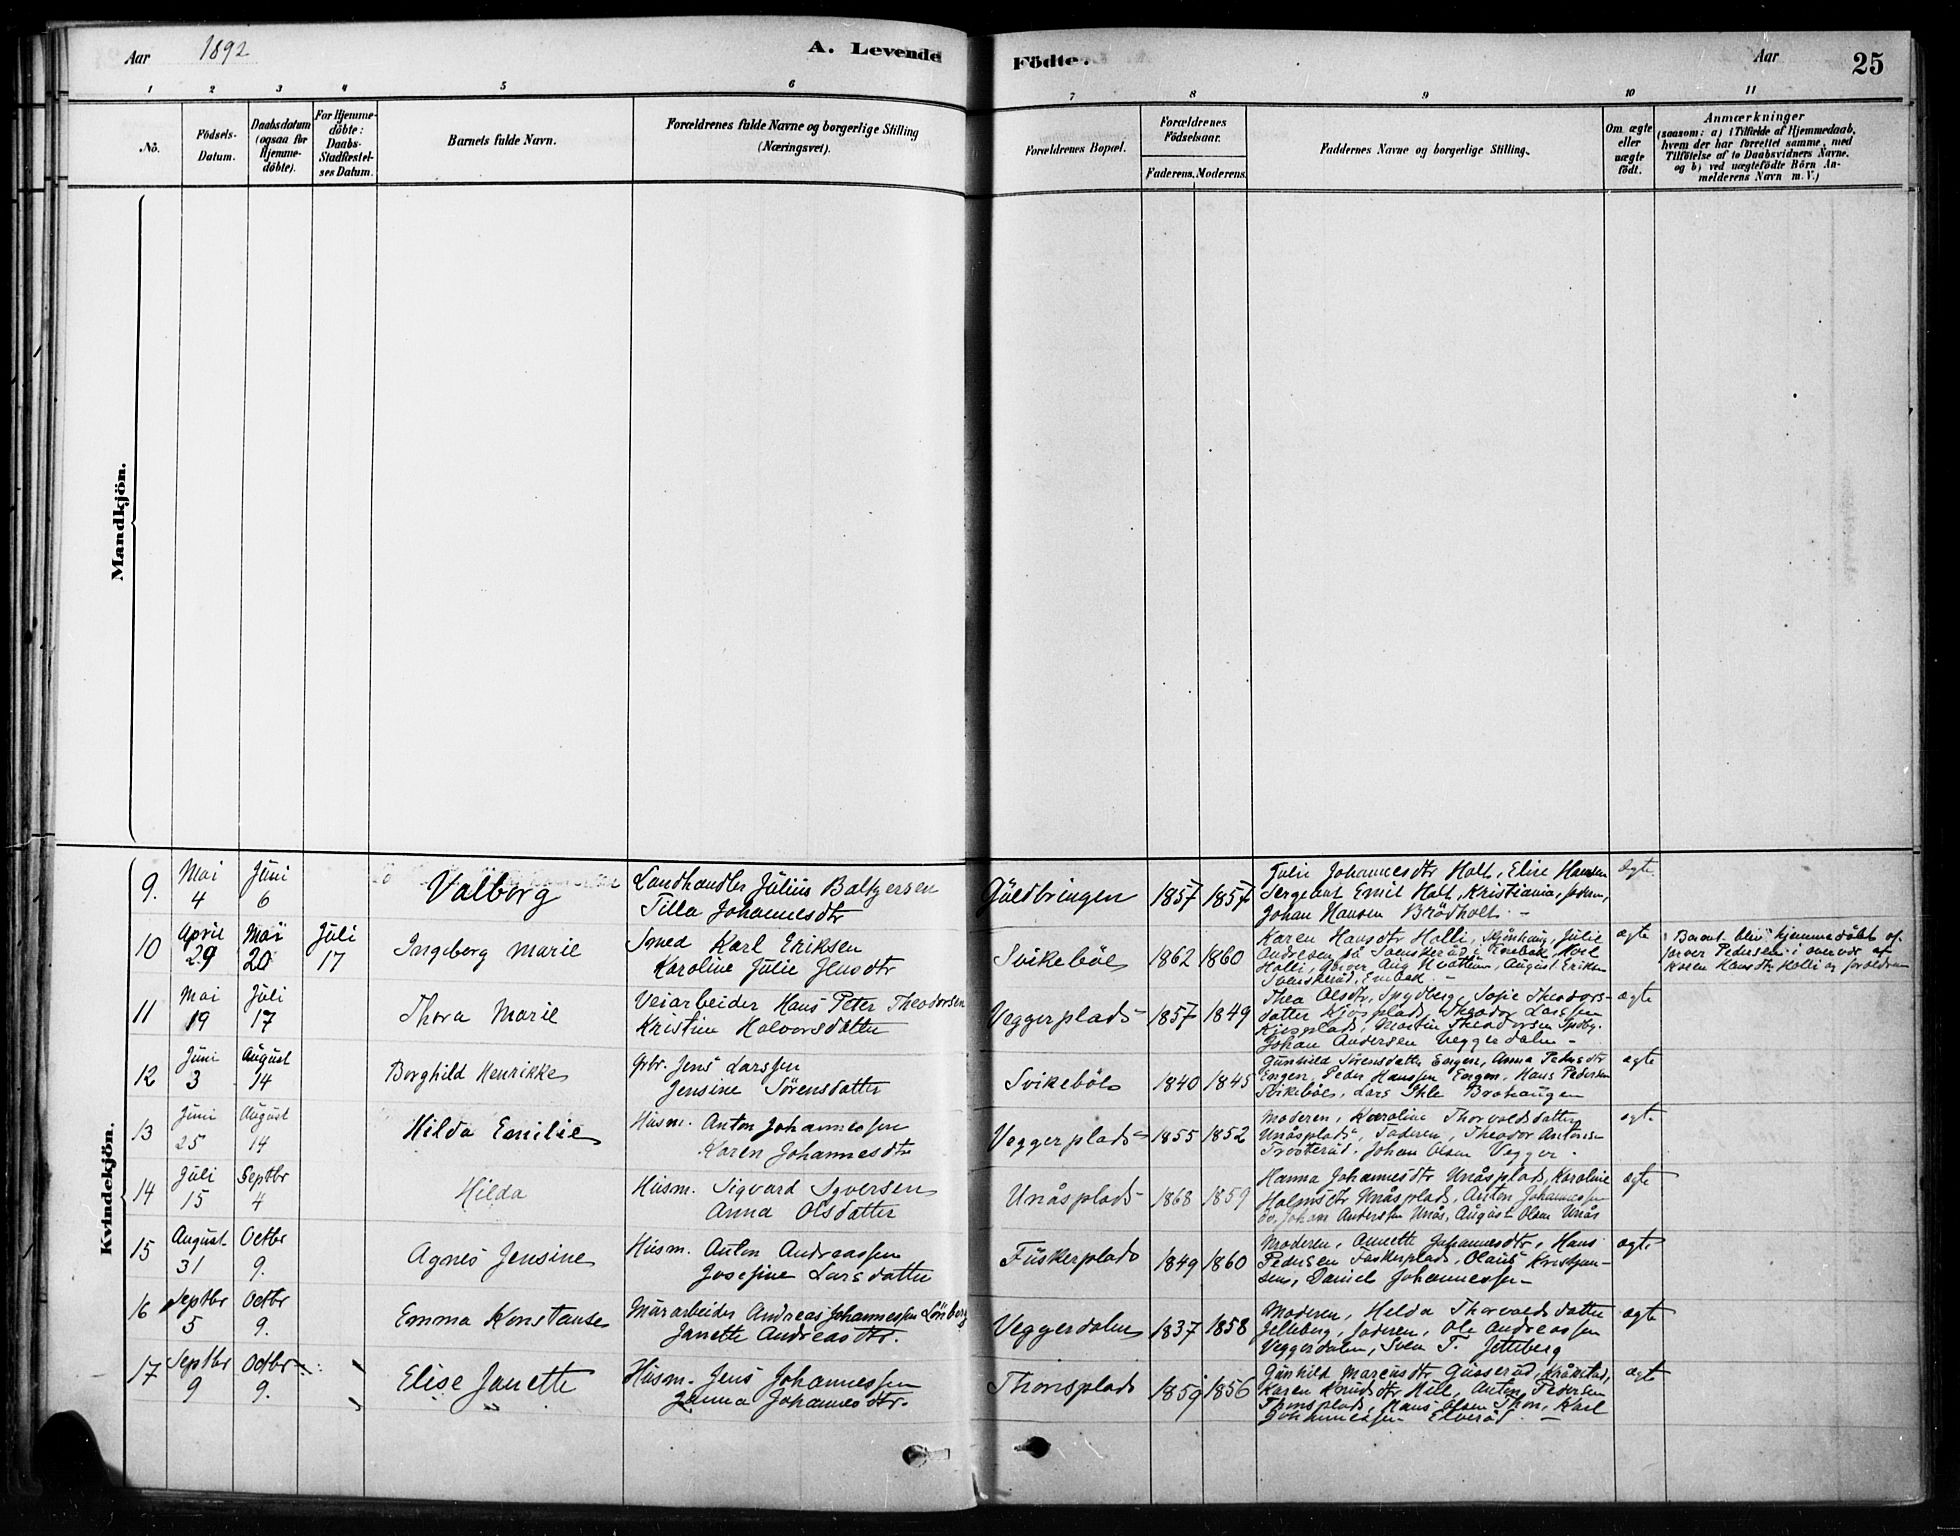 Aar 1892
A. Levende Födte.
Aar
25
1 2 3 4 5 6 7 8 9 10 11
No.
Födsels-Datum.
Daabsdatum (ogsaa for Hjemme-döbte).
For Hjemme-döbte: Daabs-Stadfæstel-ses Datum.
Barnets fulde Navn.
Forældrenes fulde Navne og borgerlige Stilling (Næringsvei).
Forældrenes Bopæl.
Forældrenes Födselsaar.
Faderens. Moderens.
Faddernes Navne og borgerlige Stilling.
Om ægte eller uægte födt.
Anmærkninger
(saasom: a) i Tilfælde af Hjemmedaab,
hvem der har forrettet samme, med
Tilföielse af to Daabsvidners Navne,
og b) ved uægtefödte Börn An-
melderens Navn m. V.)
Mandkjön.
Kvindekjön.
9. Mai 4 Juni 6 Valborg
Landhandler Julius Baltzersen
Tilla Johannesdtr
Guldbringen 1857 1857
Julie Johannesdtr Holt, Elise Hansen
Sergeant Emil Holt, Kristiania,
Johan Hansen Brödholt. -
ægte
10 April 29 Mai 20 Juli 17 Ingeborg Marie
Smed Karl Eriksen
Karoline Julie Jensdtr
Svikebøl 1862 1860
Karen Hansdtr Holli, Julie
Andresen på Svenskerud, Karl
Holli, August Eriksen
Svenskerud
ægte
Barnet blev hjemmedöbt af
Pedersen i overvær af
Karen Hansdtr Holli og forældrene
11 Mai 19 Juli 17 Thora Marie
Veiarbeider Hans Peter Theodorsen
Kristine Halvorsdatter
Veggerplads 1857 1849
Thea Olsdtr, Spydberg, Sofie Theodors-
datter Kjosplads, Theodor Larssen
Kjosplads, Martin Theodorsen Spdbg.
Johan Andersen Veggerdalen -
ægte
12 Juni 3 August 14 Borghild Henrikke
Gbr. Jens Larssen
Jensine Sörensdatter
Svikebøl 1840 1845
Gunhild Sörensdatter Engen, Anna Pedersdtr
Engen, Peder Hanssen Engen, Hans Pedersen
Svikebøl, Lars Ihle Brohaugen
ægte
13 Juni 25 August 14 Hilda Emilie
Husm. Anton Johannessen
Karen Johannesdtr
Veggerplads 1855 1852
Moderen, Karoline Thorvaldsdatter
Unåsplads, Faderen, Theodor Antonsen
Troterud, Johan Olsen Vegger.
ægte
14 Juli 15 Septbr 4 Hilda
Husm. Sigvard Syversen
Anna Olsdatter
Unåsplads 1868 1859
Hanna Johannesdtr Unåsplads, Karoline
Holmsdtr Unåsplads, Anton Johannessen
Johan Anderssen Unås, August Olsen Unås
ægte
15 August 31 Octbr 9. Agnes Jensine
Husm. Anton Andreassen
Josefine Larsdatter
Fuskerplads 1849 1860
Moderen, Annette Johannesdtr, Hans
Pedersen Faskerplads, Olaus Kristian-
sen, Daniel Johannessen
ægte
16 Septbr 5 Octbr 9. Emma Konstanse
Murarbeider Andreas Johannessen Lönberg
Janette Andreasdtr.
Veggerdalen 1837 1858
Moderen, Helda Thorvaldsdatter
Jelleberg, faderen, Ole Andreassen
Veggerdalen, Sven T. Jetteberg
ægte
17 Septbr 9 Octbr 9. Elise Janette
Husm. Jens Johannessen
Janna Johannesdtr.
Thonsplads 1859 1856
Gunhild Marcusdtr Gusserud, Kråkstad,
Karen Knudsdtr Hell, Anton Pedersen
Thonsplads, Hans Olsen Thon, Karl
Johannessen
ægte